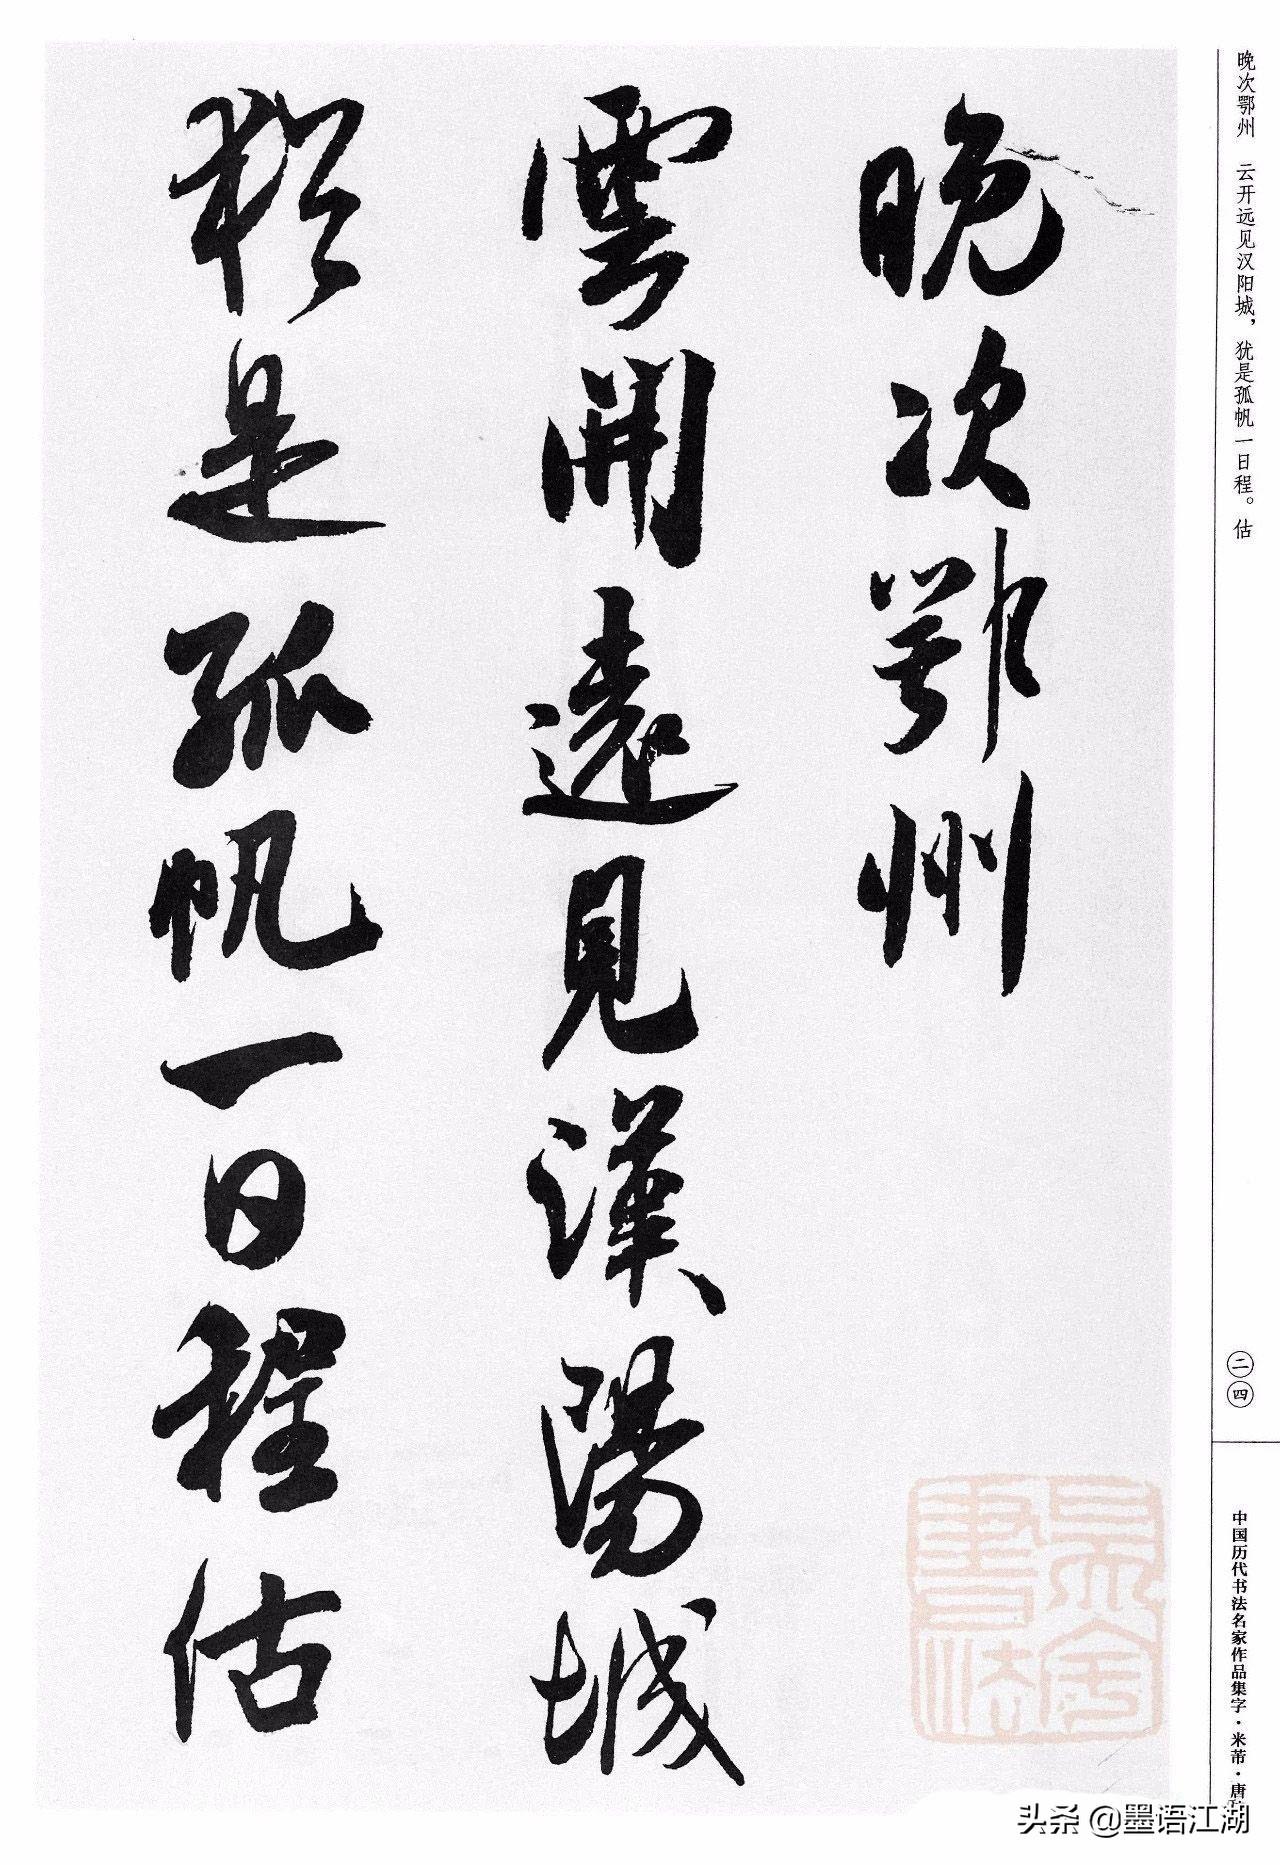 晚次鄂州　云开远见汉阳城，犹是孤帆一日程。估
晚次鄂州
雲開遠見漢陽城
猶是孤帆一日程估
二四
中国历代书法名家作品集字·米芾·唐
头条 @墨语江湖